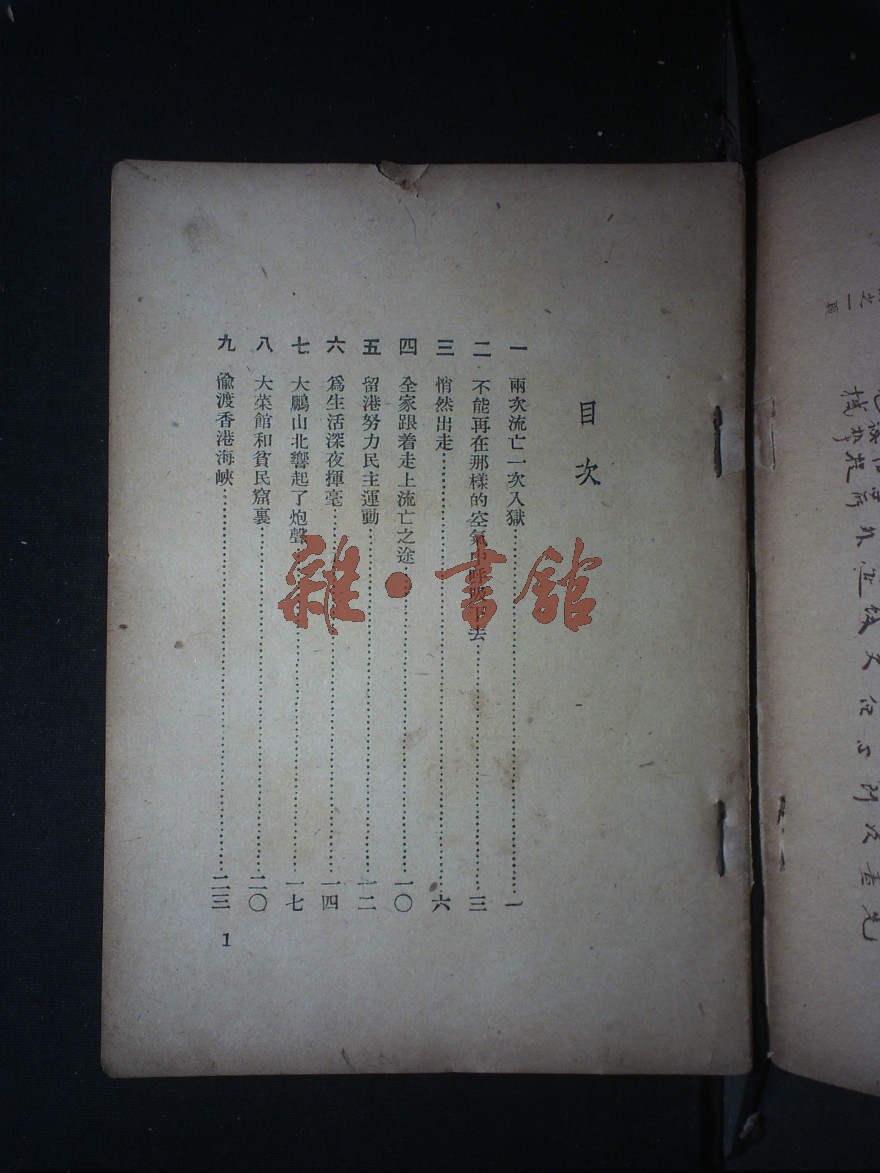 目次
一 兩次流亡一次入獄……一
二 不能再在那樣的空氣中呼吸下去……三
三 悄然出走……六
四 全家跟着走上流亡之途……一〇
五 留港努力民主運動……一二
六 爲生活深夜揮毫……一四
七 大鵬山北響起了炮聲……一七
八 大菜館和貧民窟裏……二〇
九 偷渡香港海峽……二三
1
雜·書館